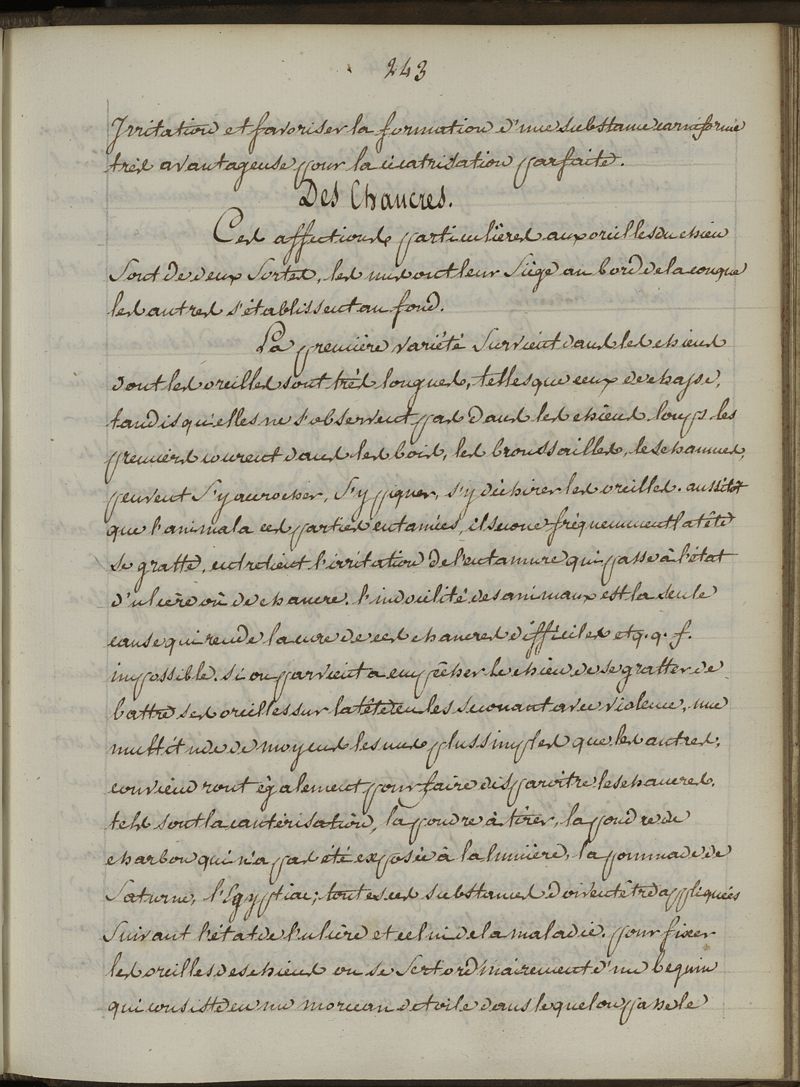 243
Irritation et favoriser la formation d'une substance carniforme
très avantageuse pour la cicatrisation parfaite.
Des Chancres.
Ces affections particulières aux oreilles du chien
Sont de deux Sortes, les unes ont leur Siège au bord de la conque
les autres s'établissent au fond.
La première variété Survient dans les chiens
dont les oreilles sont très longues, telles que ceux de chasse,
tandis qu'elles ne s'observent pas dans les chiens loups. les
premiers courent dans les bois, les broussailles, les chaumes,
peuvent S'y accrocher, S'y piquer, s'y déchirer les oreilles. aussitôt
que l'animal a ces parties entamées, il secoue fréquemment la tête
se gratte, entretient l'irritation de l'entamure qui passe à l'état
d'ulcère ou de chancre. l'indocilité des animaux est la seule
cause qui rende la cure de ces chancres difficiles et q. q. f.
impossible. si on parvient a empêcher le chien de se gratter de
battre ses oreilles sur la tête en les secouant avec violence, une
multitude de moyens les uns plus simples que les autres,
conviendront également pour faire disparoître les chancres.
tels sont la cautérisation, la poudre à tirer, la poudre de
charbon qui n'a pas été exposée à la lumière, la pommade de
Saturne, l'Egyptiac; toutes ces substances doivent être appliquées
Suivant l'état de l'ulcère et celui de la maladie. pour fixer
les oreilles des chiens on se Sert ordinairement d'un beguin
qui consiste en un morceau de toile dans lequel on passe le